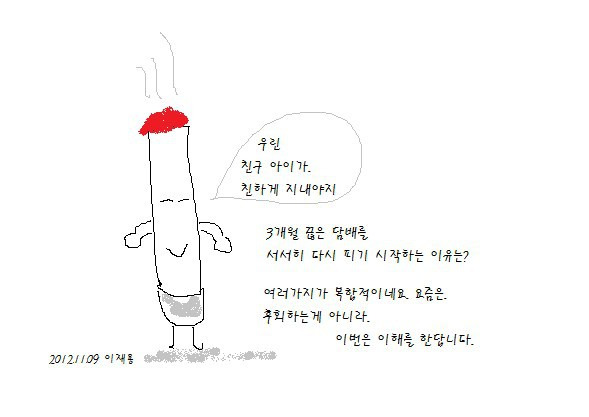 우린
친구 아이가.
친하게 지내야지
3개월 끊은 담배를
서서히 다시 피기 시작하는 이유는?
여러가지가 복합적이네요. 요즘은.
후회하는게 아니라.
이번은 이해를 한답니다.
2012.11.09 이재용